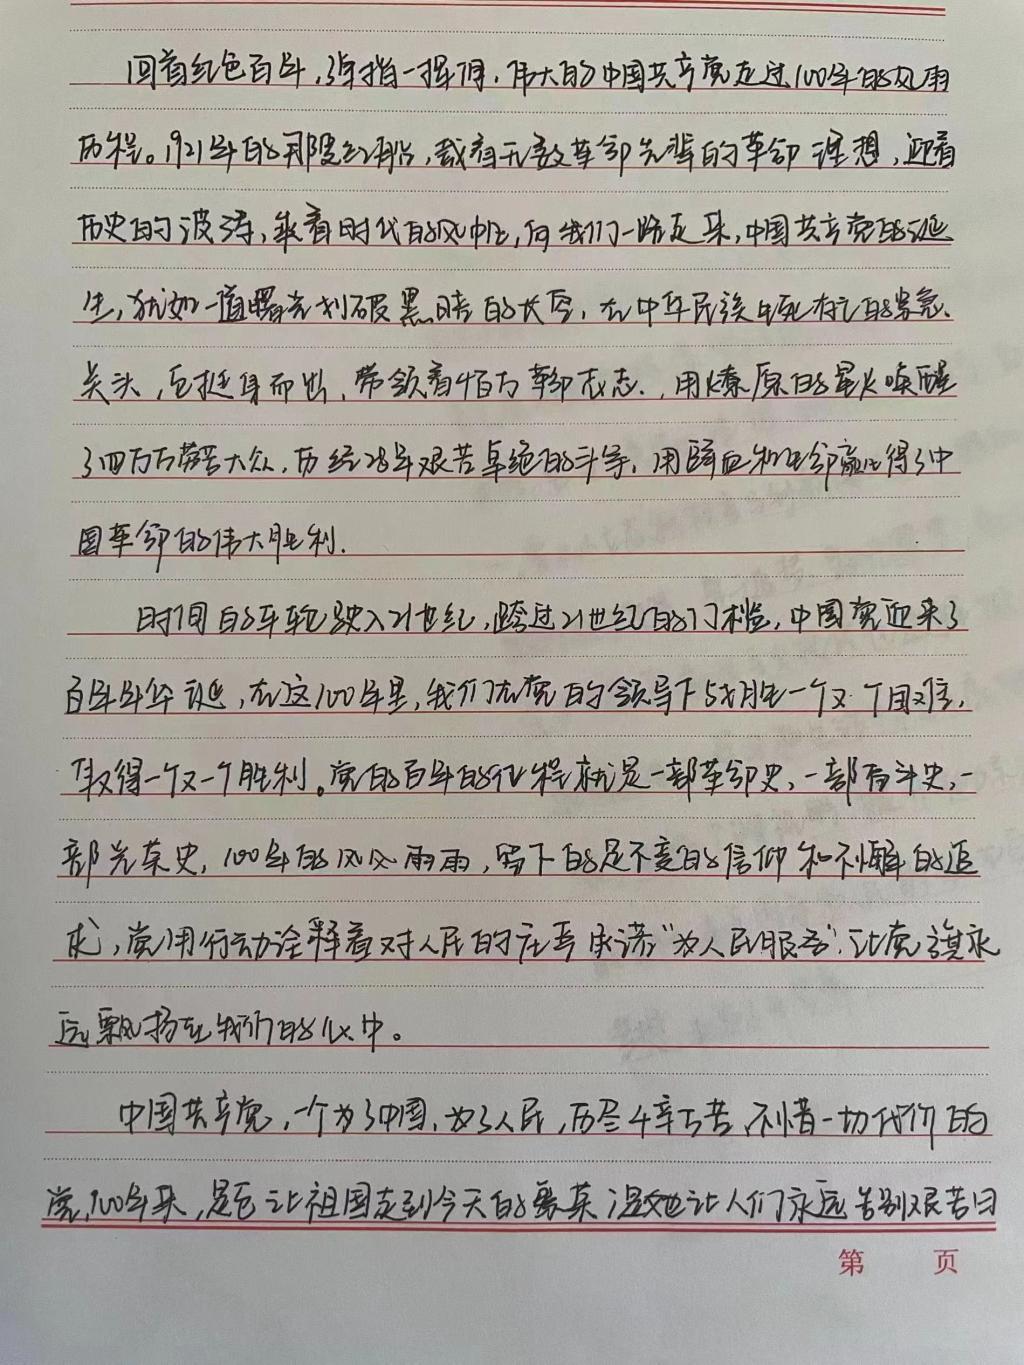 回首红色百年,弹指一挥间,伟大的中国共产党走过100年的风雨
历程。1921年的那艘红船,载着无数革命先辈的革命理想,迎着
历史的波涛,乘着时代的风帆,向我们一路走来,中国共产党的诞
生,犹如一道曙光划破黑暗的长空,在中华民族生死存亡的紧急
关头,它挺身而出,带领着4百万革命志士,用燎原的星火唤醒
了四万万劳苦大众,历经28年艰苦卓绝的斗争,用鲜血和生命赢得了中
国革命的伟大胜利.
时间的车轮驶入21世纪,跨过21世纪的门槛,中国党迎来了
百年年华诞,在这100年里,我们在党的领导下战胜一个又一个困难,
取得一个又一个胜利。党的百年的征程就是一部革命史,一部奋斗史,一
部光荣史,100年的风风雨雨,写下的是不变的信仰和不懈的追
求,党用行动诠释着对人民的庄严承诺"为人民服务".让党旗永
远飘扬在我们的心中。
中国共产党,一个为了中国,为了人民,历尽千辛万苦,不惜一切代价的
党,100年来,是它让祖国走到今天的繁荣 是她让人们永远告别艰苦日
第 页